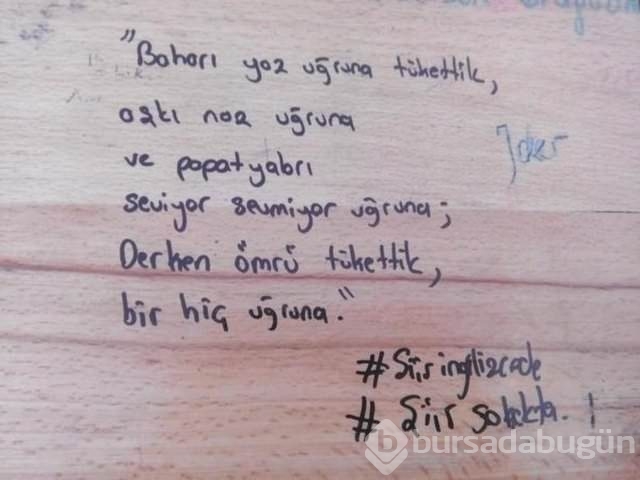 "Baharı yaz uğruna tükettik,
aşkı naz uğruna
ve papatyaları
seviyor sevmiyor uğruna;
Derken ömrü tükettik,
bir hiç uğruna."
Joker
#Şiir ingilizcede
# Şiir sokakta. !
bursadabugün